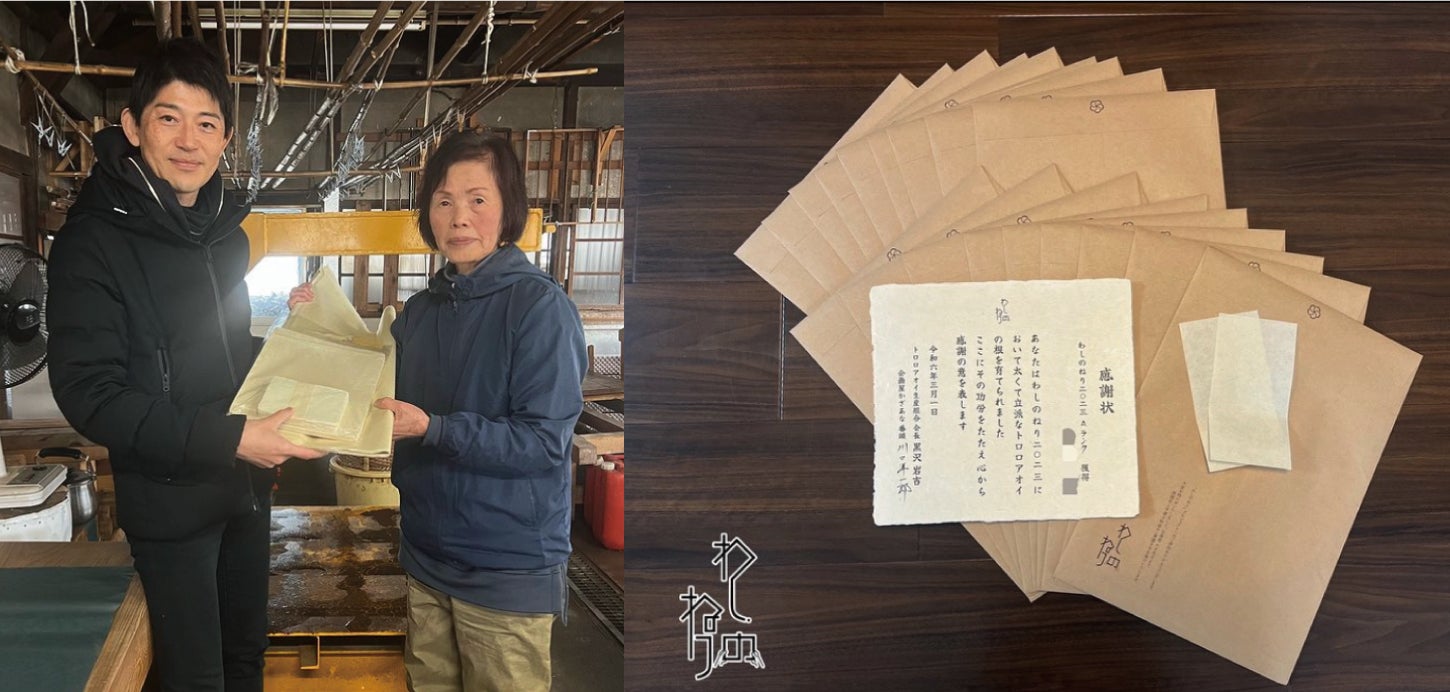 わしのねり
感謝状
わしのねり二〇二三 Aランク 獲得
あなたはわしのねり二〇二三に
おいて太くて立派なトロロアオイ
の根を育てられました
ここにその功労をたたえ心から
感謝の意を表します
令和六年三月一日
トロロアオイ生産組合 会長 黒沢岩吉
企画屋かざあな 番頭 川口洋一郎
わしのねり
わしのねり